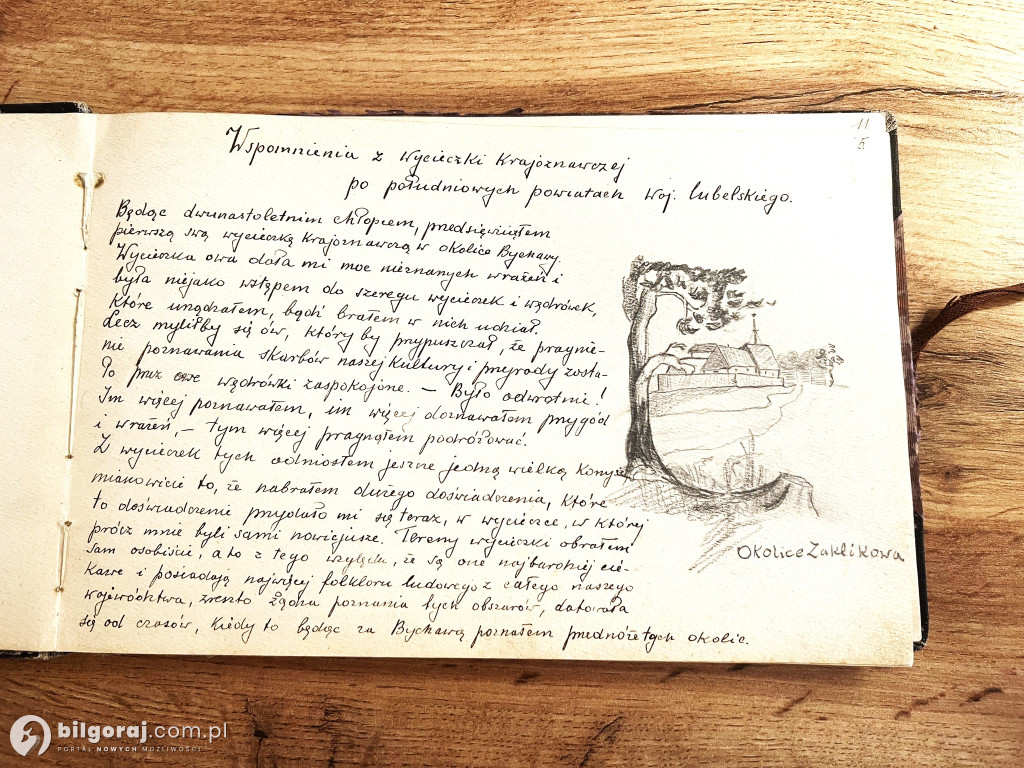 11
5.
Wspomnienia z wycieczki Krajoznawczej
po południowych powiatach woj. lubelskiego.
Będąc dwunastoletnim chłopcem, przedsięwziąłem
pierwszą swą wycieczkę Krajoznawczą w okolice Bychawy.
Wycieczka owa dała mi moc nieznanych wrażeń i
była niejako wstępem do szeregu wycieczek i wędrówek,
które urządzałem, bądź brałem w nich udział.
Lecz myliłby się ów, który by przypuszczał, że pragnie-
nie poznawania skarbów naszej Kultury i przyrody zosta-
ło przez owe wędrówki zaspokojone. – Było odwrotnie!
Im więcej poznawałem, im więcej doznawałem przygód
i wrażeń, – tym więcej pragnąłem podróżować.
Z wycieczek tych odniosłem jeszcze jedną wielką Korzyść,
mianowicie to, że nabrałem dużego doświadczenia, które
to doświadczenie przydało mi się teraz, w wycieczce, w której
prócz mnie byli sami nowicjusze. Tereny wycieczki obrałem
sam osobiście, a to z tego względu, że są one najbardziej cie-
kawe i posiadają najwięcej folkloru ludowego z całego naszego
województwa, zresztą żądza poznania tych obszarów, datowała
się od czasów, Kiedy to będąc za Bychawą poznałem przednóże tych okolic.
Okolice Zaklikowa
bilgoraj.com.pl
PORTAL NOWYCH MOŻLIWOŚCI